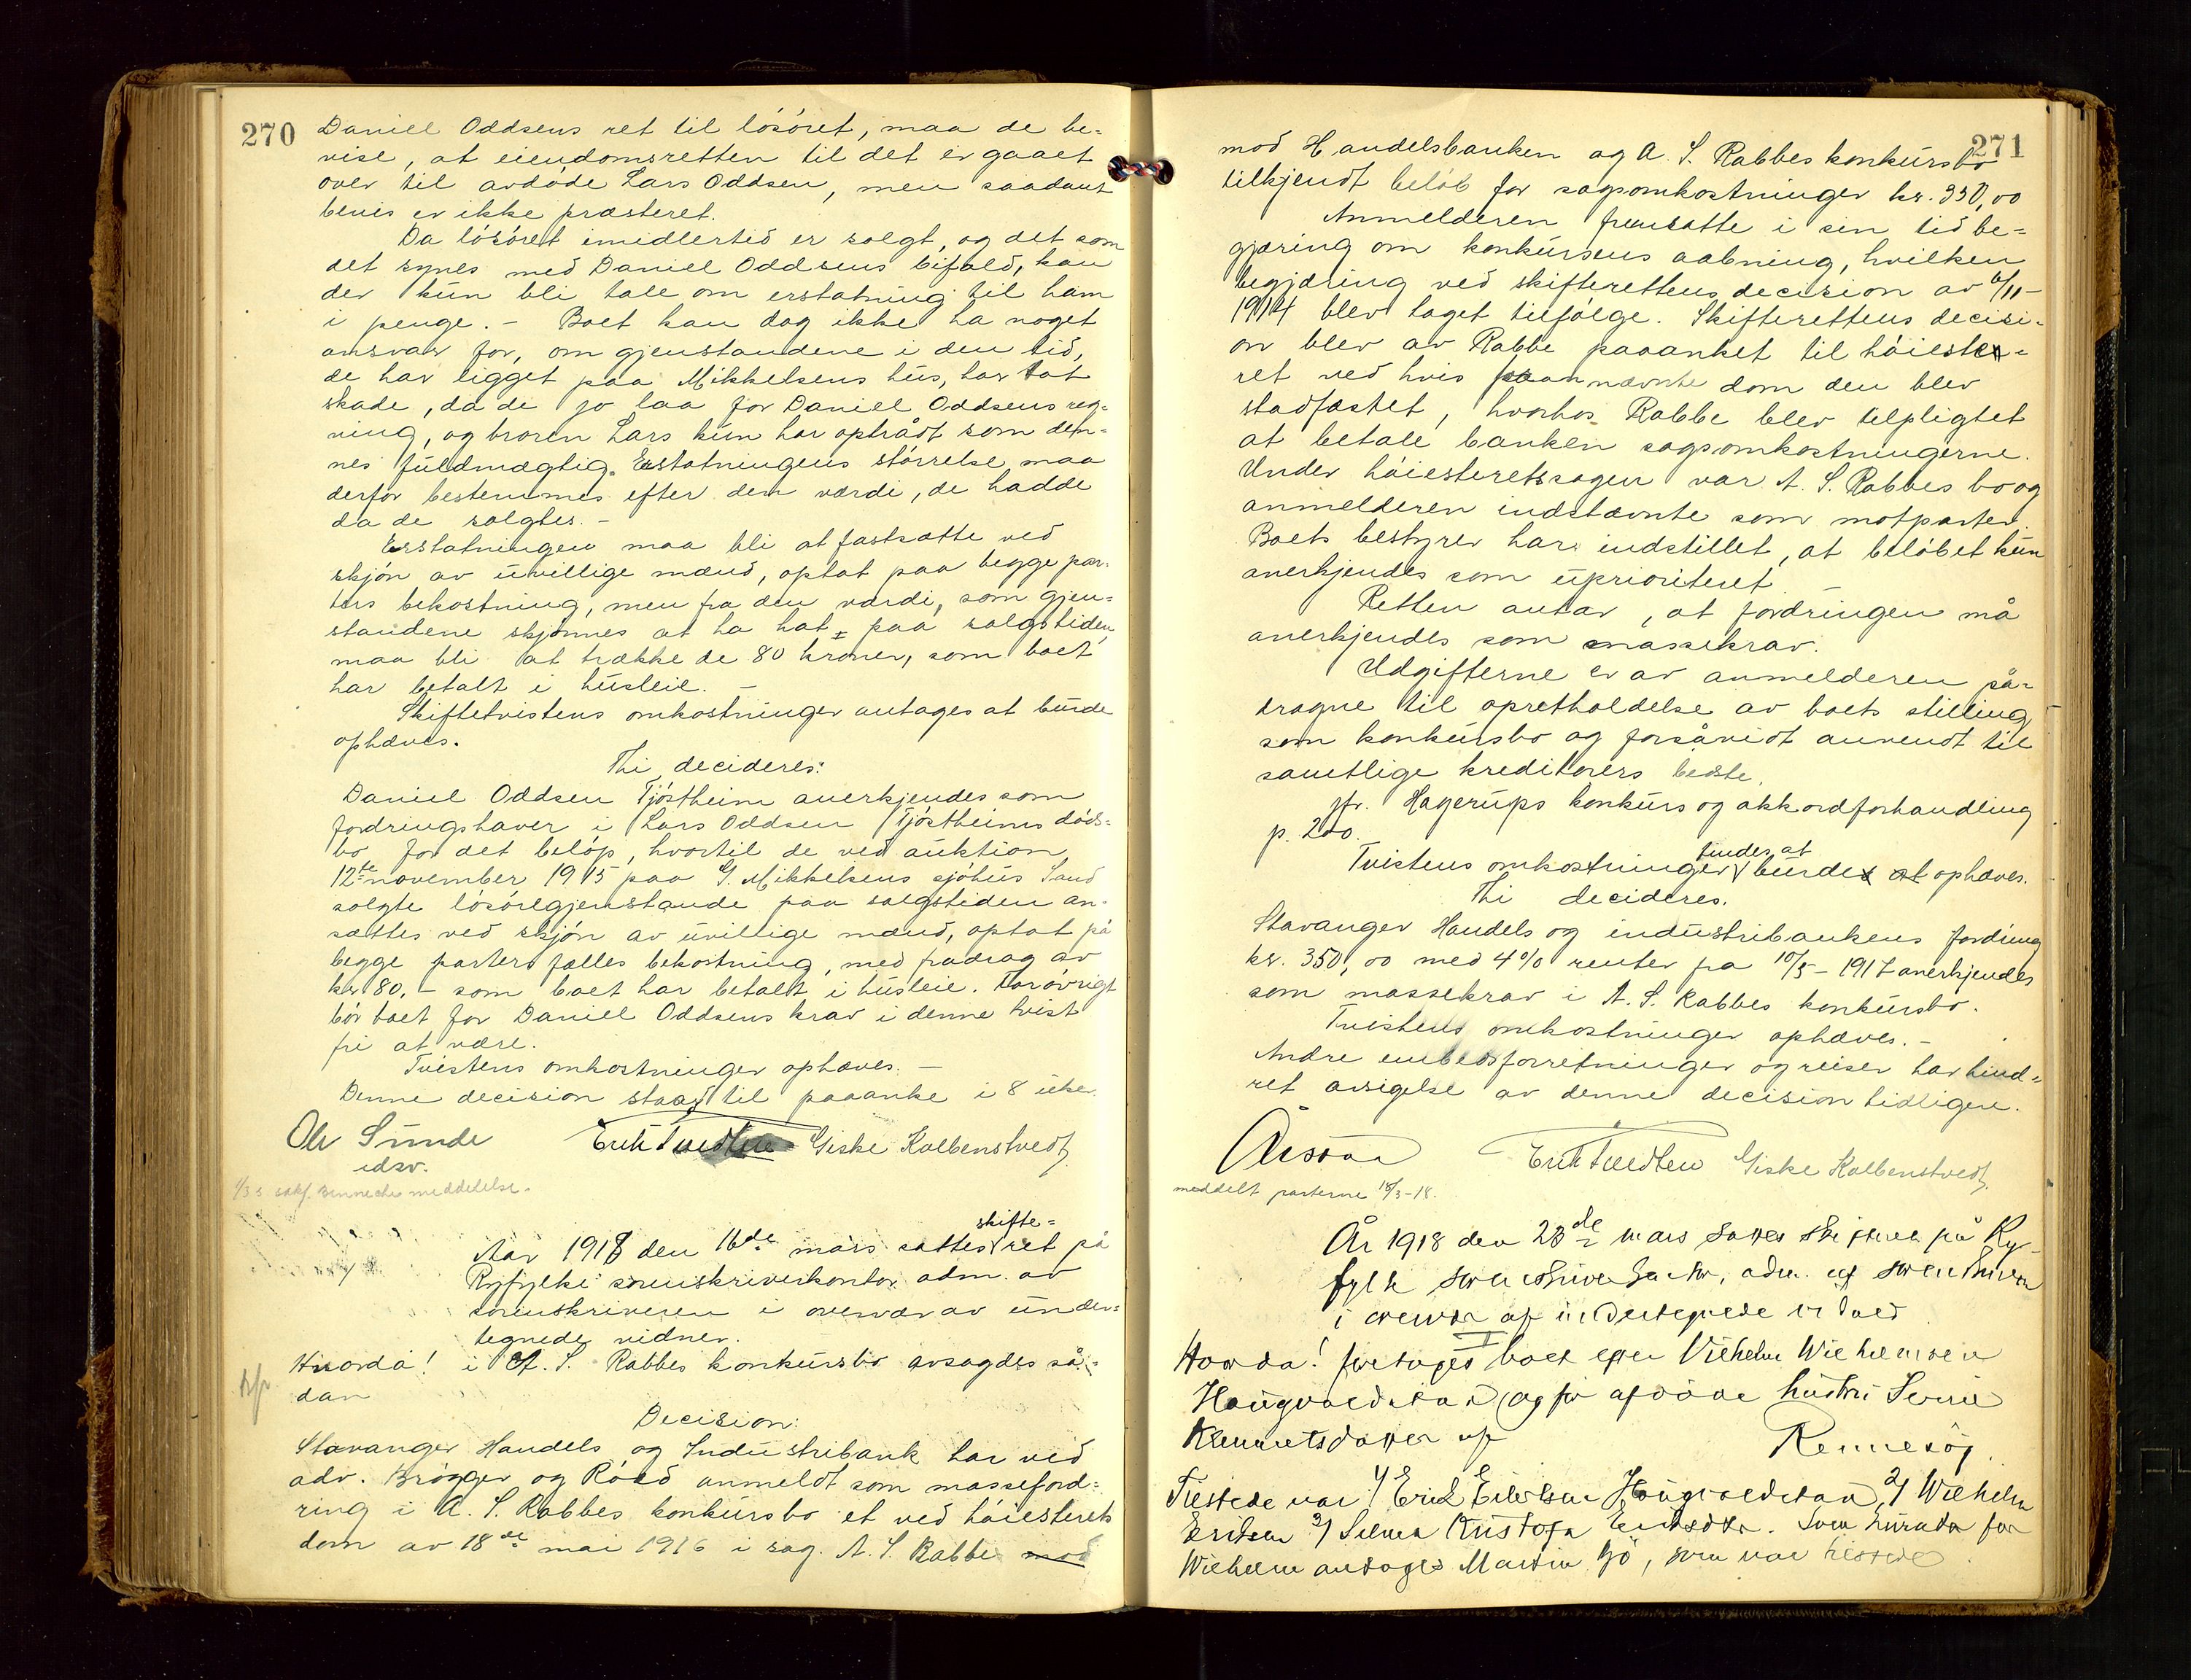 270
Daniel Oddsens ret til lösöret, maa de be=
vise, at eiendomsretten til det er gaaet
over til avdöde Lars Oddsen, men saadant
bevis er ikke præsteret.
Da lösöret imidlertid er solgt, og det som
det synes med Daniel Oddsens bifald, kan
der kun bli tale om erstatning til ham
i penge. – Boet kan dog ikke ha noget
ansvar for, om gjenstandene i den tid,
de har ligget paa Mikkelsens hus, har tat
skade, da de jo laa for Daniel Oddsens reg=
ning, og broren Lars kun har optrådt som den=
nes fuldmægtig. Erstatningens störrelse maa
derfor bestemmes efter den værdi, de hadde
da de solgtes. –
Erstatningen maa bli at fastsætte ved
skjön av uvillige mænd, optat paa begge par=
ters bekostning, men fra den værdi, som gjen=
standene skjönnes at ha hat paa salgstiden,
maa bli at trække de 80 kroner, som boet
har betalt i husleie. –
Skiftetvistens omkostninger antages at burde
ophæves.
Thi decideres:
Daniel Oddsen Tjöstheim anerkjendes som
fordringshaver i Lars Oddsen Tjöstheims döds=
bo for det belöp, hvortil de ved auktion
12te november 1915 paa G. Mikkelsens sjöhus Sand
solgte lösöregjenstande paa salgstiden an=
sættes ved skjön av uvillige mænd, optat på
begge parters fælles bekostning, med fradrag av
kr 80,- som boet har betalt i husleie. Forövrigt
bör boet for Daniel Oddsens krav i denne tvist
fri at være.
Tvistens omkostninger ophæves. –
Denne decision staar til paaanke i 8 uker
Ole Sunde Erik Tvedten Giske Kolbenstvedt
edsv.
sakf. Benneche meddelelse.
skifte=
Aar 1918 den 16de mars sattes ret på
Ryfylke sorenskriverkontor adm. av
sorenskriveren i overvær av under=
tegnede vidner.
Hvorda! i A. S. Rabbes konkursbo avsagdes så=
dan
Decision:
Stavanger Handels og Industribank har ved
adv. Brögger og Röed anmeldt som masseford=
ring i A. S. Rabbes konkursbo et ved höiesterets
dom av 18de mai 1916 i sag. A. S. Rabbe mod
271
mod Handelsbanken og A. S. Rabbes konkursbo
tilkjendt belöb for sagsomkostninger kr. 350,00
Anmelderen fremsatte i sin tid be=
gjæring om konkursens aabning, hvilken
begjæring ved skifterettens decision av 6/11-
1914 blev taget tilfölge. Skifterettens decisi=
on blev av Rabbe paaanket til höieste=
ret ved hvis nævnte dom den blev
stadfæstet, hvorhos Rabbe blev tilpligtet
at betale banken sagsomkostningerne.
Under höiesteretssagen var A. S. Rabbes bo og
anmelderen indstævnte som motparter.
Boets bestyrer har indstillet, at belöbet kun
anerkjendes som uprioriteret. –
Retten antar, at fordringen må
anerkjendes som massekrav.
Udgifterne er av anmelderen på=
dragne til opretholdelse av boets stilling
som konkursbo og forsåvidt anvendt til
samtlige kreditorers bedste.
jfr. Hagerups konkurs og akkordforhandling
p. 200.
findes at
Tvistens omkostninger burde at ophæves.
Thi decideres.
Stavanger Handels og industribankens fordring
kr. 350,00 med 4% renter fra 10/5 - 1917 anerkjendes
som massekrav i A. S. Rabbes konkursbo.
Tvistens omkostninger ophæves. –
Andre embedsforretninger og reiser har hind=
ret avsigelse av denne decision tidligere.
Erik Tvedten Giske Kolbenstvedt
meddelt parterne 18/3-18.
År 1918 den 23de mars sattes skifteret på Ry=
fylke sorenskriverkontor, adm. af sorenskriveren
i overvær af undertegnede vidner
I
Hvorda! foretoges boet efter Vilhelm Wilhelmsen
Haugvaldstad og før afdöde hustru
af
Rennesöy
Tilstede var 1/ Erik Haugvaldstad, 2/ Wilhelm
Eriksen 3/ Selma Kristofa Eriksdtr. Som kurator for
Wilhelm antoges Martin Gjö, som var tilstede